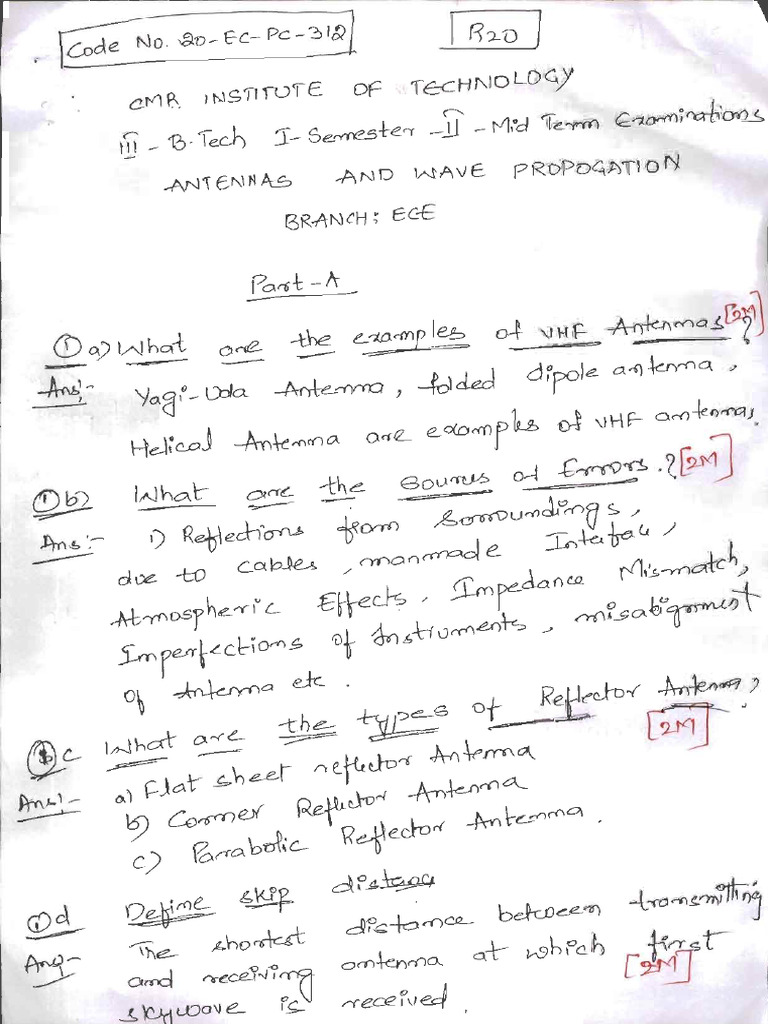 Code No. 20-EC-PC-312
R20
CMR INSTITUTE OF TECHNOLOGY
III - B.Tech I-Semester - II - Mid Term Examinations
ANTENNAS AND WAVE PROPOGATION
BRANCH: ECE
Part-A
1 a) What are the examples of VHF Antennas? [2M]
Ans:- Yagi-Uda Antenna, folded dipole antenna,
Helical Antenna are examples of VHF antennas.
1 b) What are the Sources of Errors.? [2M]
Ans:- i) Reflections from Sorroundings,
due to cables, manmade
Atmospheric Effects, Impedance Mismatch,
Imperfections of Instruments, misalignment
of Antenna etc.
c What are the types of Reflector Antenna?
[2M]
Ans:- a) Flat sheet reflector Antenna
b) Corner Reflector Antenna
c) Parrabolic Reflector Antenna.
1 d Define skip distance
Ans:- The shortest distance between transmitting
and receiving antenna at which first
[2M]
skywave is received.